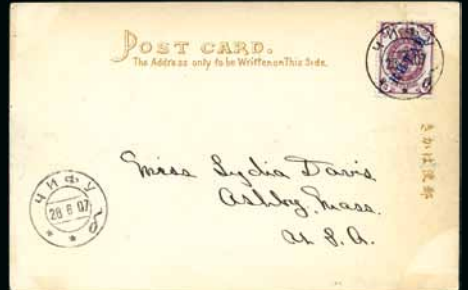 POST CARD.
The Address only to be Written on This Side.
ЧИФУ
きかは便郵
Miss Lydia Davis
Ashby, Mass.
U. S. A.
ЧИФУ
28 6 07